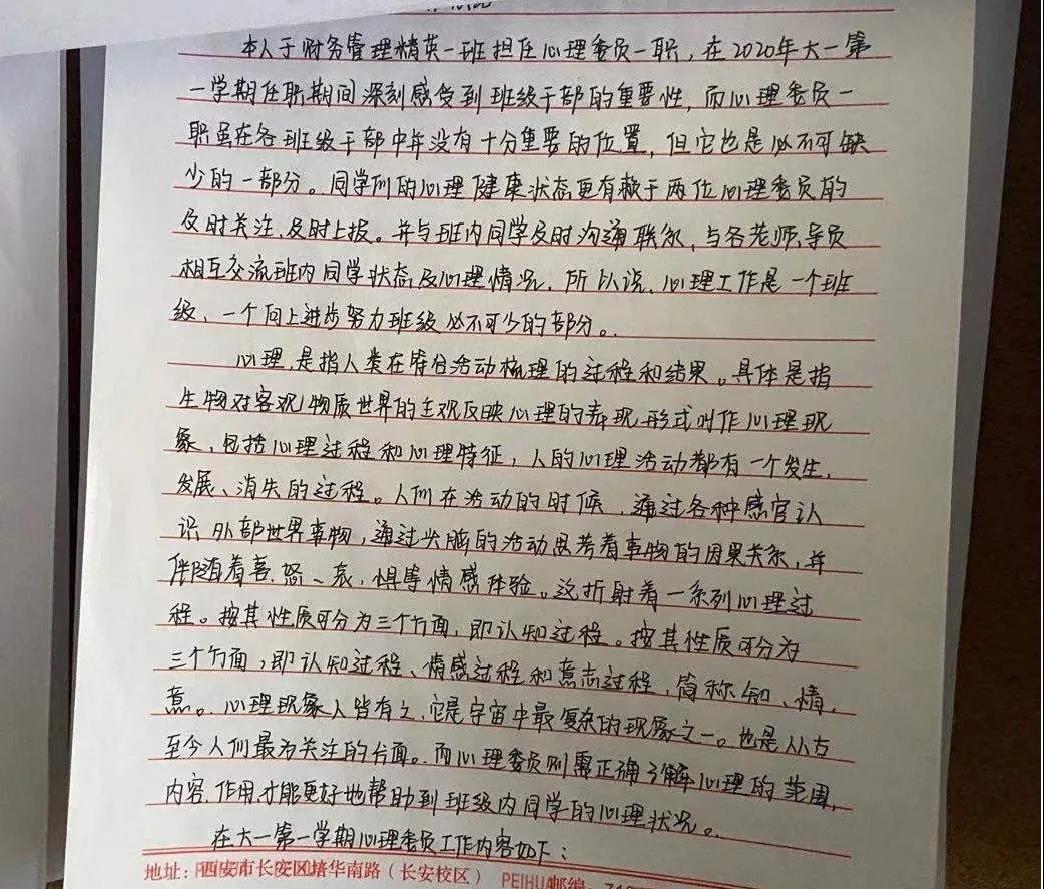 本人于财务管理精英一班担任心理委员一职，在2020年大一第
一学期任职期间深刻感受到班级干部的重要性，而心理委员一
职虽在各班级干部中并没有十分重要的位置，但它也是必不可缺
少的一部分。同学们的心理健康状态更有赖于两位心理委员的
及时关注、及时上报。并与班内同学及时沟通联系，与各老师、导员
相互交流班内同学状态及心理情况。所以说，心理工作是一个班
级、一个向上进步努力班级必不可少的部分。
心理，是指人类在符合活动梳理的过程和结果。具体是指
生物对客观物质世界的主观反映心理的表现形式叫作心理现
象，包括心理过程和心理特征，人的心理活动都有一个发生，
发展、消失的过程。人们在活动的时候，通过各种感官认
识外部世界事物，通过头脑的活动思考着事物的因果关系，并
伴随着喜、怒、哀、惧等情感体验。这折射着一系列心理过
程。按其性质可分为三个方面，即认知过程。按其性质可分为
三个方面，即认知过程、情感过程和意志过程，简称知、情、
意。心理现象人皆有之，它是宇宙中最复杂的现象之一。也是从古
至今人们最为关注的方面。而心理委员则需正确了解心理的范围，
内容、作用，才能更好地帮助到班级内同学的心理状况。
在大一第一学期心理委员工作内容如下：
地址：西安市长安区培华南路（长安校区） PEIHUA邮编